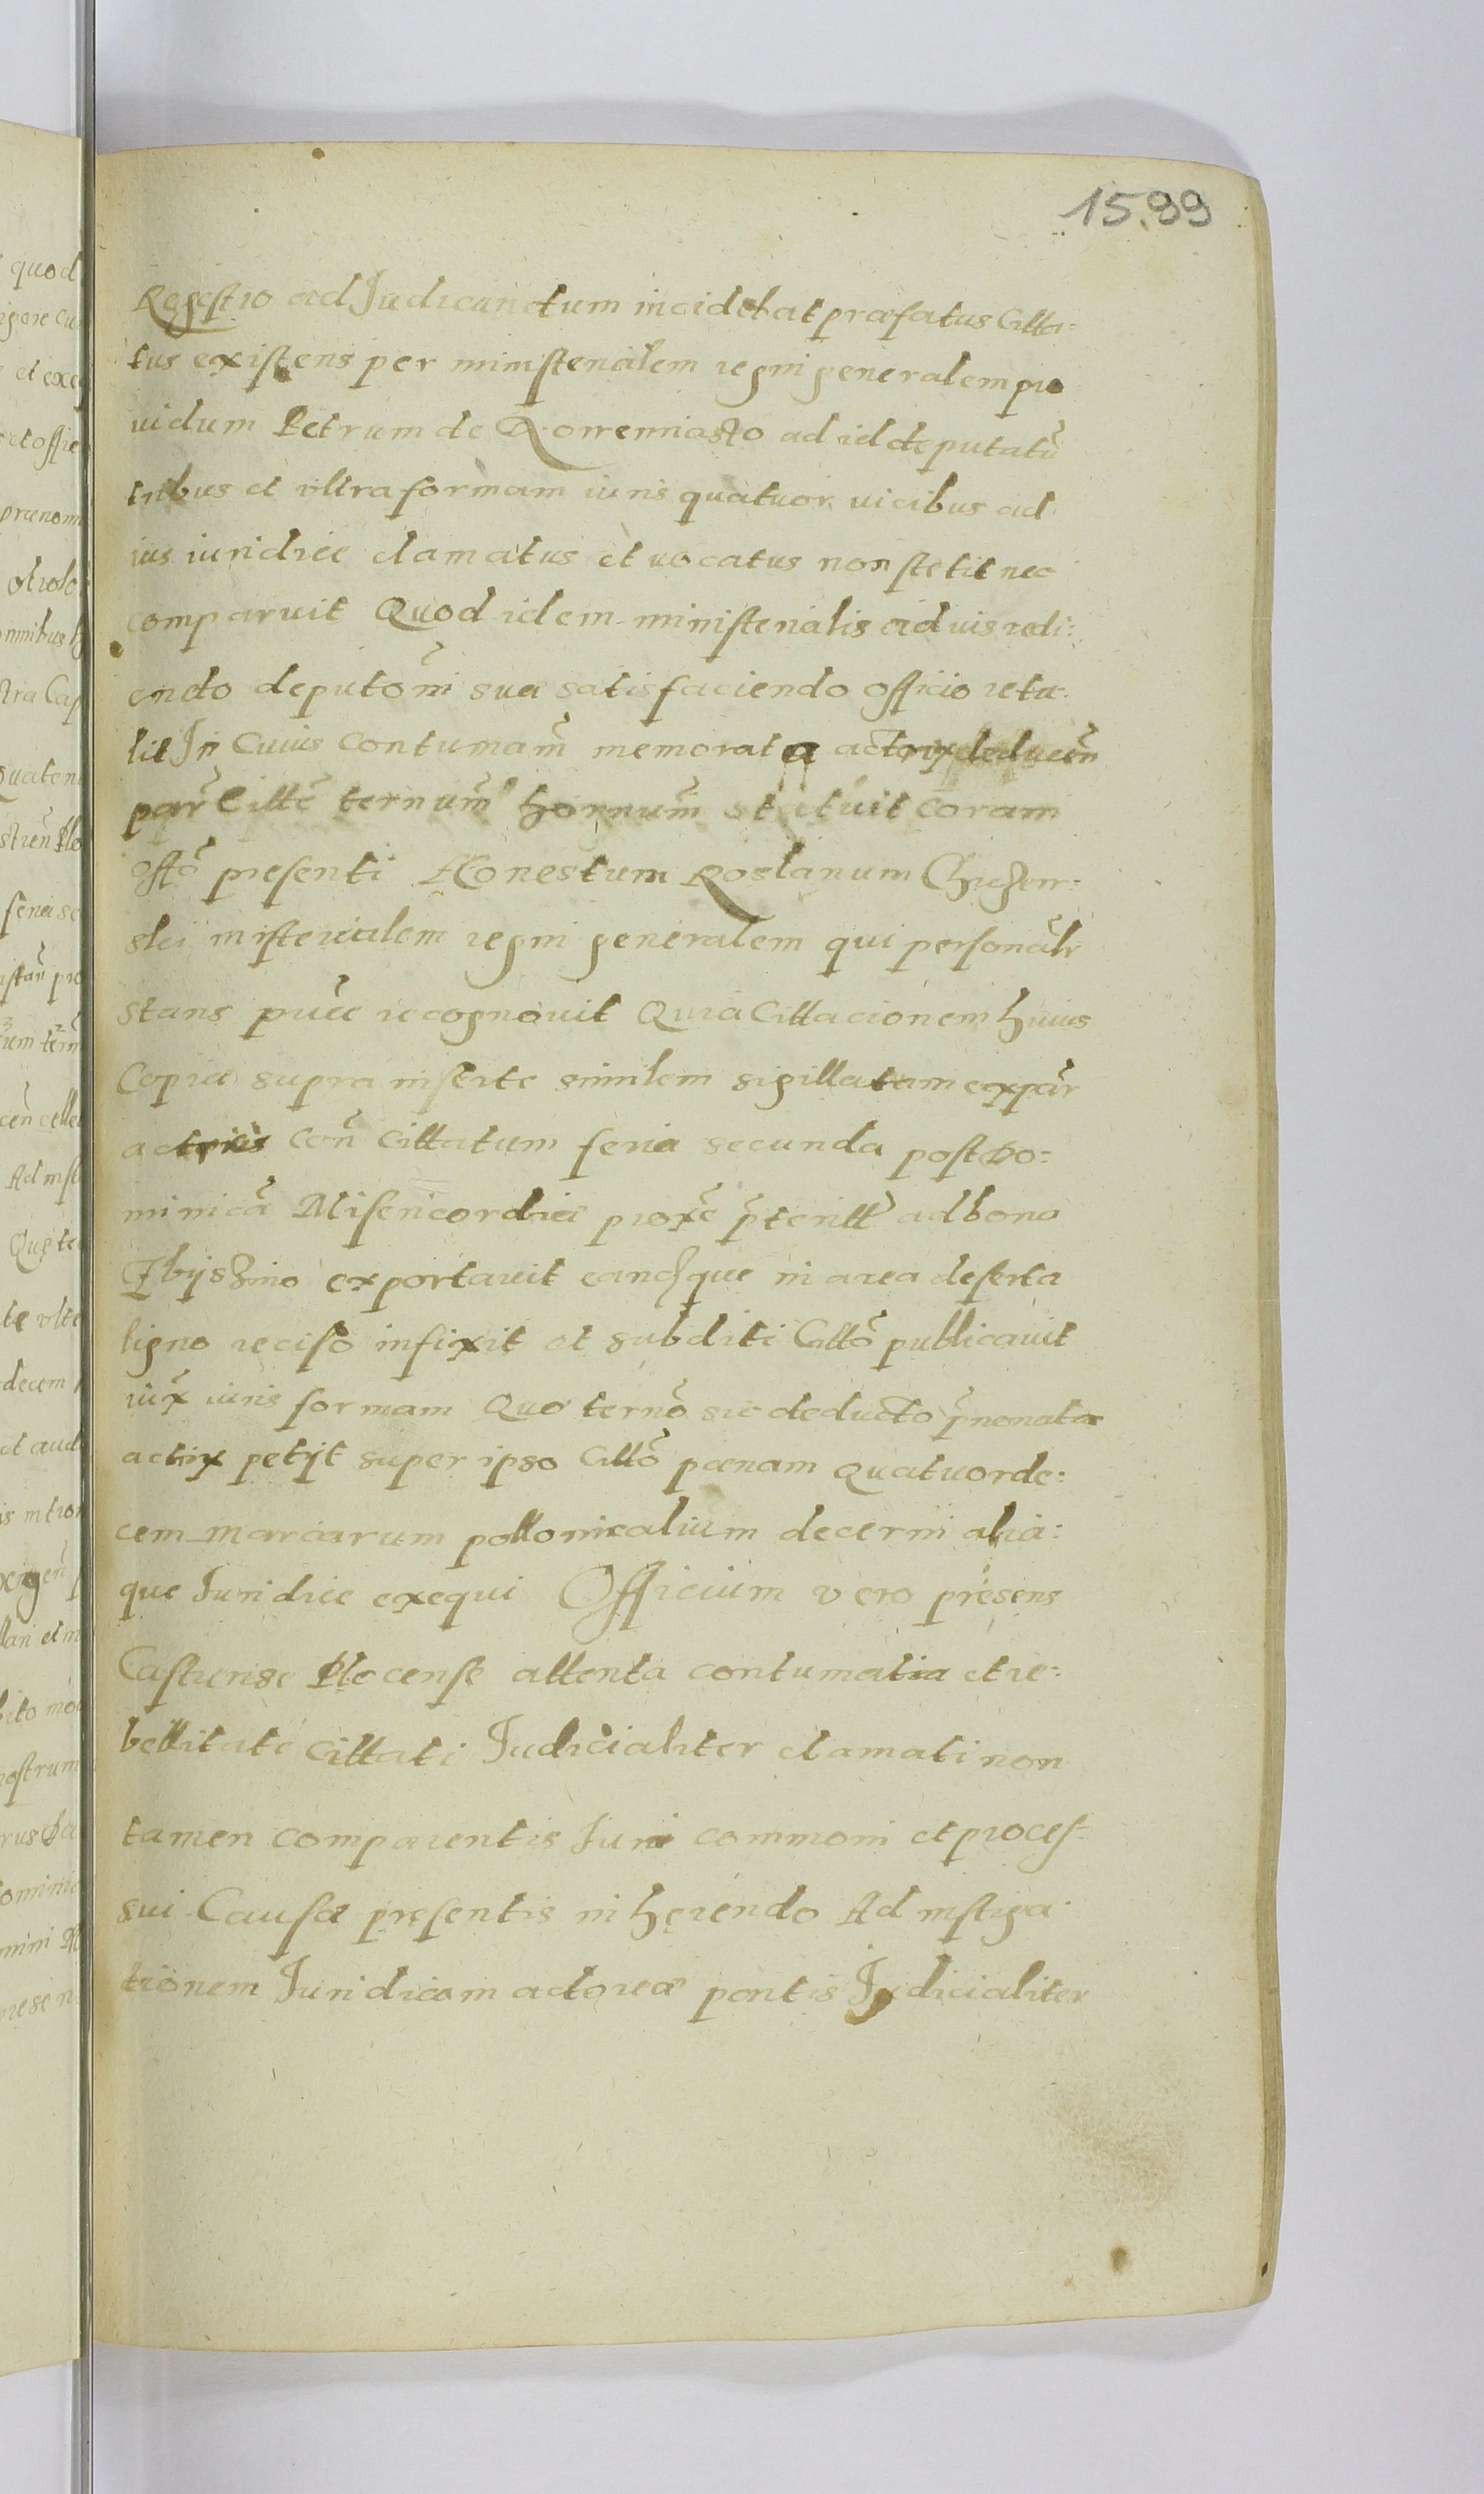 1599
quod
Regestro ad Judicandum incidebat præfatus Citta:
tus existens per ministerialem regni generalem pro
uidum Petrum de ad id deputatũ
tribus et vltra formam iuris quatuor vicibus ad
ius iuridice clamatus et uocatus non stetit nec
comparuit Quod idem ministerialis ad uis redi:
endo deputoñi suæ satisfaciendo officio retu:
lit In Cuius Contumam̃ memorata actrix
par̃ Citte ternum̃ hornum̃ statuit coram
offõ presenti Honestum Roslanum
slci misterialem regni generalem qui personalr̃
stans puce recognouit Quia Cittacionem huius
Copiæ supra inserte similem sigillatam expar̃
actricis Coñ Cittatum feria secunda post Do:
minicã Misericordiæ proxẽ p̃teritt ad bona
exportauit eandque in area deserta
ligno reciso infixit et subditi Cittõ publicauit
iux̃ iuris formam Quo ternõ sic deducto p̃nonata
actrix petijt super ipso Cittõ pœnam quatuorde:
cem marcarum pollonicalium decerni alia:
que Juridice exequi Officium vero presens
Castrense Plocense attenta contumatia et re:
bellitate Cittati Judicialiter clamati non
tamen comparentis Juri commoni et proces:
sui Causæ presentis inherendo Ad instiga:
tionem Juridicam actoreæ partis Judicialiter